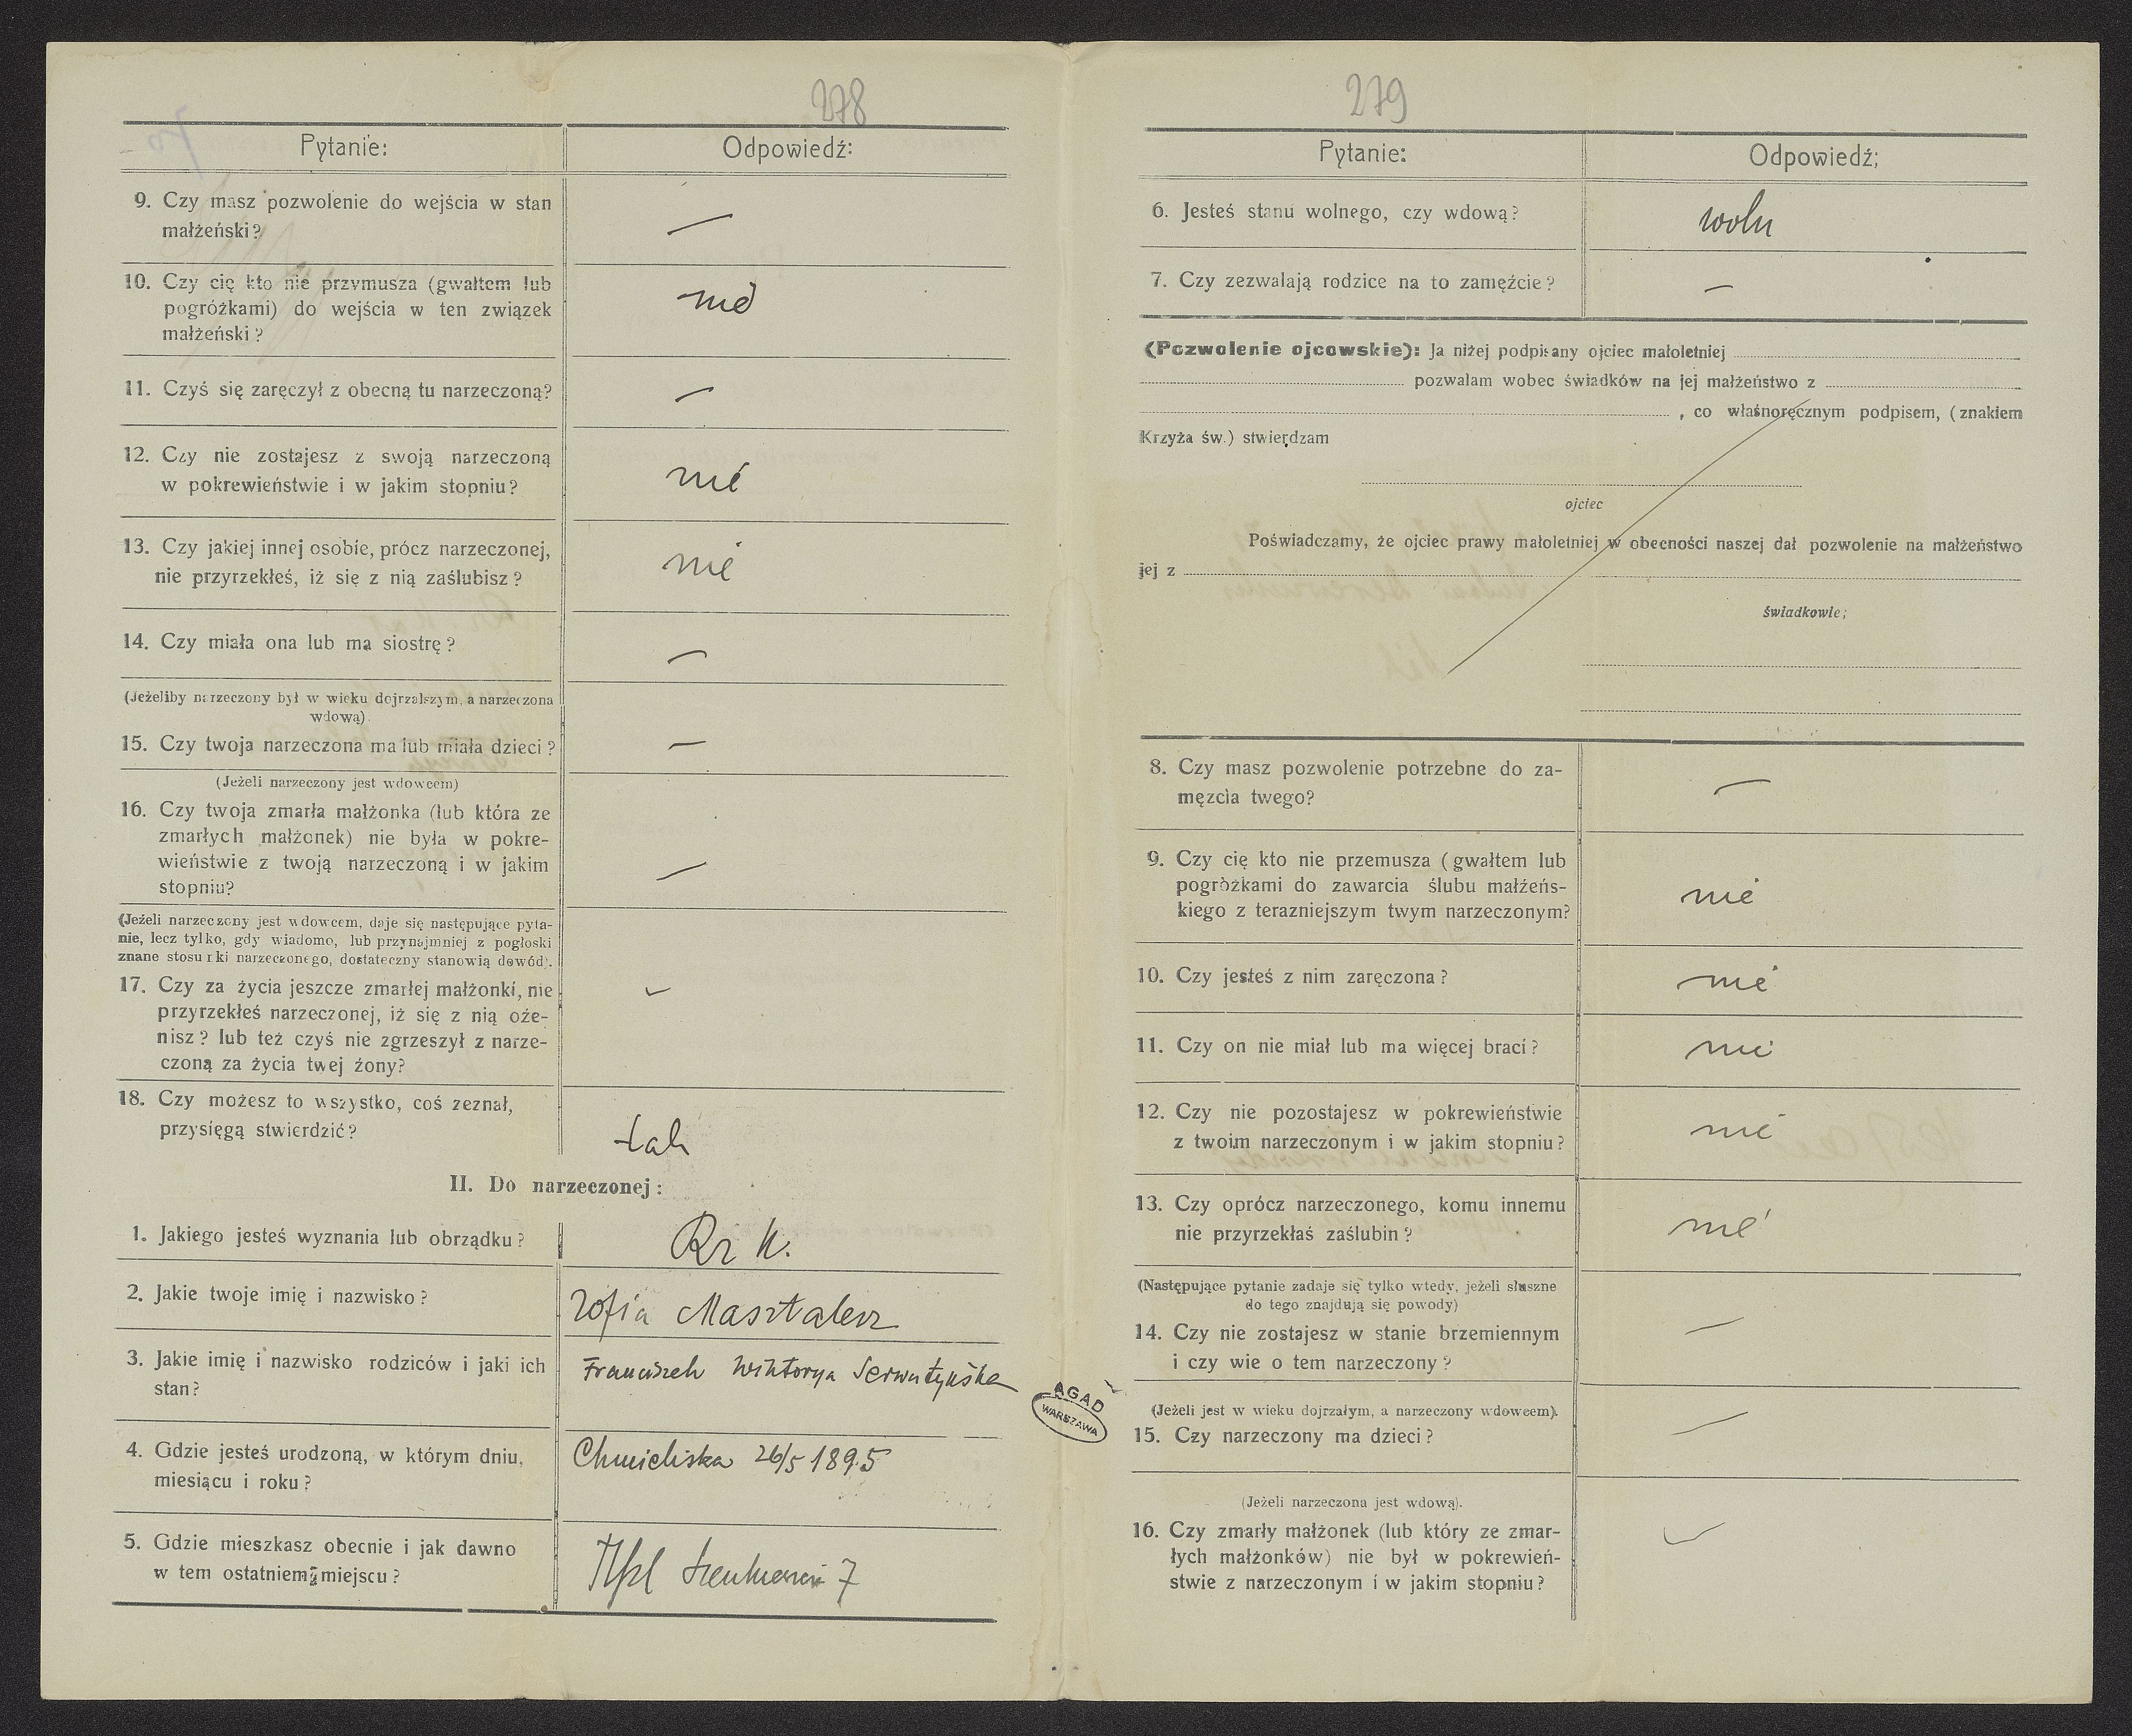 278
Pytanie:
Odpowiedź:
9. Czy masz pozwolenie do wejścia w stan
małżeński?
—
10. Czy cię kto nie przymusza (gwałtem lub
pogróżkami) do wejścia w ten związek
małżeński?
nie
11. Czyś się zaręczył z obecną tu narzeczoną?
—
12. Czy nie zostajesz z swoją narzeczoną
w pokrewieństwie i w jakim stopniu?
nie
13. Czy jakiej innej osobie, prócz narzeczonej,
nie przyrzekłeś, iż się z nią zaślubisz?
nie
14. Czy miała ona lub ma siostrę?
—
(Jeżeliby narzeczony był w wieku dojrzalszym, a narzeczona
wdową)
15. Czy twoja narzeczona ma lub miała dzieci?
—
(Jeżeli narzeczony jest wdowcem)
16. Czy twoja zmarła małżonka (lub która ze
zmarłych małżonek) nie była w pokre-
wieństwie z twoją narzeczoną i w jakim
stopniu?
—
(Jeżeli narzeczony jest wdowcem, daje się następujące pyta-
nie, lecz tylko, gdy wiadomo, lub przynajmniej z pogłoski
znane stosunki narzeczonego, dostateczny stanowią dowód).
17. Czy za życia jeszcze zmarłej małżonki, nie
przyrzekłeś narzeczonej, iż się z nią oże-
nisz? lub też czyś nie zgrzeszył z narze-
czoną za życia twej żony?
18. Czy możesz to wszystko, coś zeznał,
przysięgą stwierdzić?
tak
II. Do narzeczonej:
1. Jakiego jesteś wyznania lub obrządku?
Rz k.
2. Jakie twoje imię i nazwisko?
Zofia Masztalerz
3. Jakie imię i nazwisko rodziców i jaki ich
stan?
Franciszek Wiktorya Serwatyńska
4. Gdzie jesteś urodzoną, w którym dniu,
miesiącu i roku?
Chmieliska 26/5 1895
5. Gdzie mieszkasz obecnie i jak dawno
w tem ostatniem miejscu?
7
AGAD
WARSZAWA
279
Pytanie:
Odpowiedź;
6. Jesteś stanu wolnego, czy wdową?
woln
7. Czy zezwalają rodzice na to zamęźcie?
—
(Pozwolenie ojcowskie): Ja niżej podpisany ojciec małoletniej
pozwalam wobec świadków na jej małżeństwo z
, co własnoręcznym podpisem, (znakiem
Krzyża św.) stwierdzam
ojciec
Poświadczamy, że ojciec prawy małoletniej w obecności naszej dał pozwolenie na małżeństwo
jej z
świadkowie;
8. Czy masz pozwolenie potrzebne do za-
męzcia twego?
—
9. Czy cię kto nie przemusza (gwałtem lub
pogróżkami do zawarcia ślubu małżeńs-
kiego z terazniejszym twym narzeczonym?
nie
10. Czy jesteś z nim zaręczona?
nie
11. Czy on nie miał lub ma więcej braci?
nie
12. Czy nie pozostajesz w pokrewieństwie
z twoim narzeczonym i w jakim stopniu?
nie
13. Czy oprócz narzeczonego, komu innemu
nie przyrzekłaś zaślubin?
nie
(Następujące pytanie zadaje się tylko wtedy, jeżeli słuszne
do tego znajdują się powody)
14. Czy nie zostajesz w stanie brzemiennym
i czy wie o tem narzeczony?
—
(Jeżeli jest w wieku dojrzałym, a narzeczony wdowcem).
15. Czy narzeczony ma dzieci?
—
(Jeżeli narzeczona jest wdową).
16. Czy zmarły małżonek (lub który ze zmar-
łych małżonków) nie był w pokrewień-
stwie z narzeczonym i w jakim stopniu?